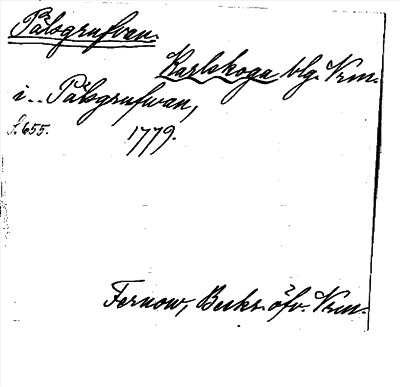 Pålsgrufvan.
Karlskoga blg. Vrm.
i.. Pålsgrufwan,
S. 655. 1779.
Fernow, Beskr. öfv. Vrm.